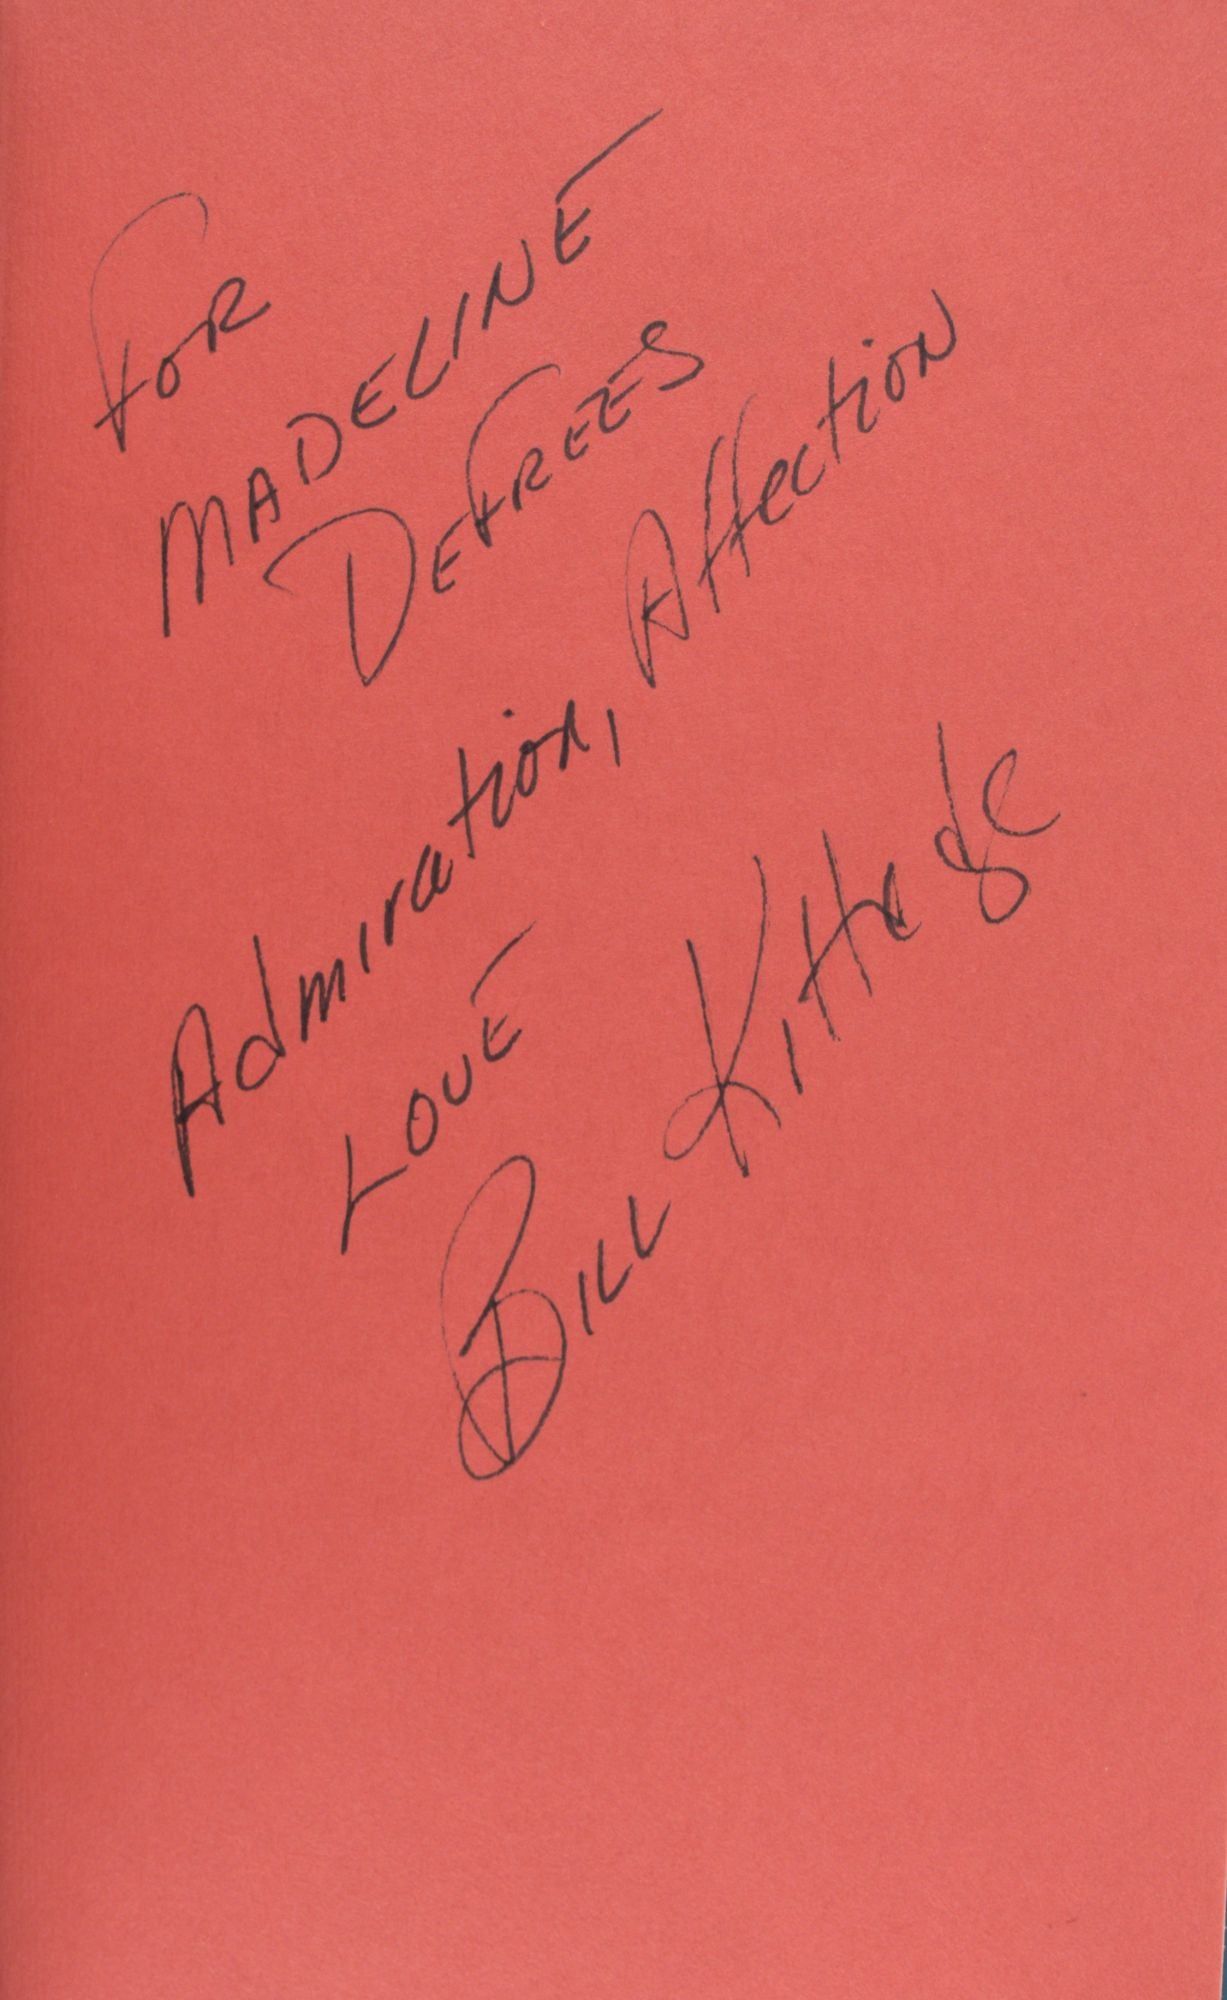 FOR
MADELINE
DEFREES
Admiration, Affection
LOVE
BILL Kittredge